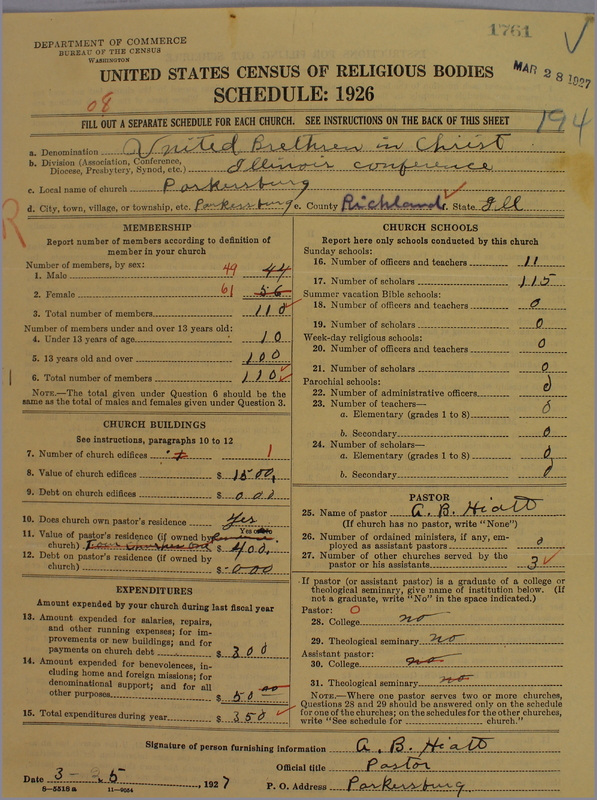 1761
DEPARTMENT OF COMMERCE
BUREAU OF THE CENSUS
WASHINGTON
MAR 28 1927
UNITED STATES CENSUS OF RELIGIOUS BODIES
SCHEDULE: 1926
08
FILL OUT A SEPARATE SCHEDULE FOR EACH CHURCH. SEE INSTRUCTIONS ON THE BACK OF THIS SHEET
194
a. Denomination United Brethren in Christ
b. Division (Association, Conference, Diocese, Presbytery, Synod, etc.) Illinois conference
c. Local name of church Parkersburg
d. City, town, village, or township, etc. Parkersburg e. County Richland f. State Ill
R
MEMBERSHIP
Report number of members according to definition of
member in your church
Number of members, by sex:
1. Male 49 44
2. Female 61 56
3. Total number of members 110
Number of members under and over 13 years old:
4. Under 13 years of age 10
5. 13 years old and over 100
6. Total number of members 110
NOTE.—The total given under Question 6 should be
same as the total of males and females given under Question 3.
CHURCH BUILDINGS
See instructions, paragraphs 10 to 12
7. Number of church edifices 1
8. Value of church edifices $ 1500
9. Debt on church edifices $ 000
10. Does church own pastor's residence Yes
Yes or no
11. Value of pastor's residence (if owned by
church) $ 400.
12. Debt on pastor's residence (if owned by
church) $ 000
EXPENDITURES
Amount expended by your church during last fiscal year
13. Amount expended for salaries, repairs,
and other running expenses; for im-
provements or new buildings; and for
payments on church debt $ 300
14. Amount expended for benevolences, in-
cluding home and foreign missions; for
denominational support; and for all
other purposes $ 50 00
15. Total expenditures during year $ 350
CHURCH SCHOOLS
Report here only schools conducted by this church
Sunday schools:
16. Number of officers and teachers 11
17. Number of scholars 115
Summer vacation Bible schools:
18. Number of officers and teachers 0
19. Number of scholars 0
Week-day religious schools:
20. Number of officers and teachers 0
21. Number of scholars 0
Parochial schools:
22. Number of administrative officers 0
23. Number of teachers—
a. Elementary (grades 1 to 8) 0
b. Secondary 0
24. Number of scholars—
a. Elementary (grades 1 to 8) 0
b. Secondary 0
PASTOR
25. Name of pastor A. B. Hiatt
(If church has no pastor, write "None")
26. Number of ordained ministers, if any, em-
ployed as assistant pastors 0
27. Number of other churches served by the
pastor or his assistants 3
If pastor (or assistant pastor) is a graduate of a college or
theological seminary, give name of institution below. (If
not a graduate, write "No" in the space indicated.)
Pastor: 0
28. College no
29. Theological seminary no
Assistant pastor:
30. College no
31. Theological seminary no
NOTE.—Where one pastor serves two or more churches,
Questions 28 and 29 should be answered only on the schedule
for one of the churches; on the schedules for the other churches,
write "See schedule for church."
Signature of person furnishing information A. B. Hiatt
Official title Pastor
Date 3-25, 1927 P. O. Address Parkersburg
8-5518a 11-9054